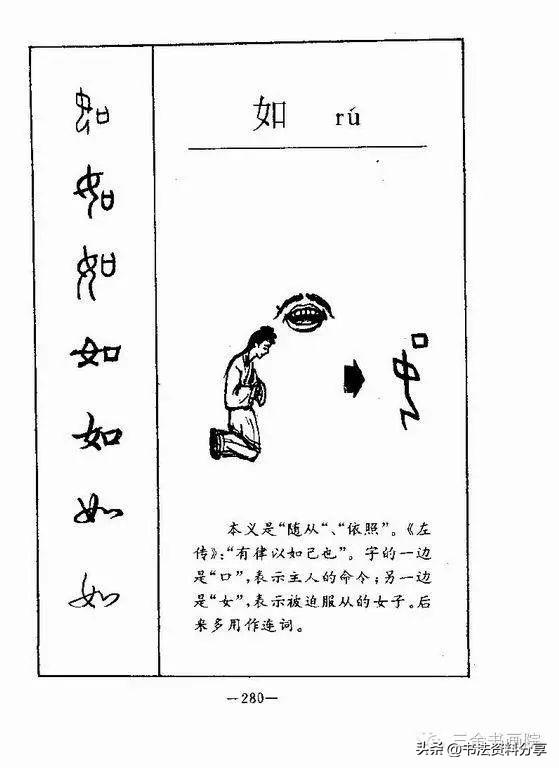 如 rú
如
如
如
如
如
如
如
本义是“随从“、“依照”。《左
传》:“有律以如己也”。字的一边
是“口”,表示主人的命令;另一边
是“女”,表示被迫服从的女子。后
来多用作连词。
—280—
三余书画院
头条@书法资料分享